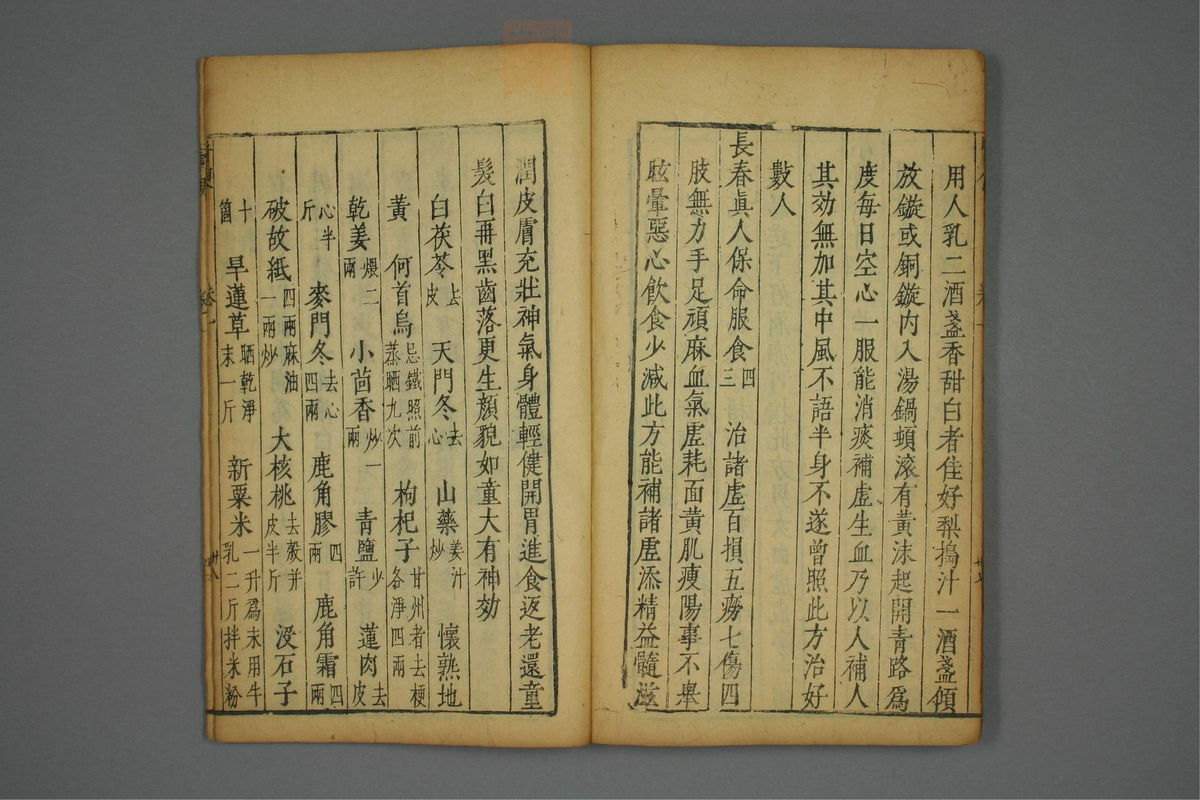 用人乳二酒盞香甜白者佳好梨搗汁一酒盞傾
放鏇或銅鏇內入湯鍋頓滚有黃沫起開青路爲
度每日空心一服能消痰補虛生血乃以人補人
其効無加其中風不語半身不遂曾照此方治好
數人
長春眞人保命服食四三治諸虛百損五癆七傷四
肢無力手足頑麻血氣虛耗面黃肌瘦陽事不舉
眩暈惡心飲食少減此方能補諸虛添精益髓滋
潤皮膚充壯神氣身體輕健開胃進食返老還童
髮白再黑齒落更生顏貌如童大有神効
白茯苓去皮 天門冬去心 山藥姜汁炒 懷熟地
黃 何首烏忌鐵照前蒸晒九次 枸杞子甘州者去梗各淨四兩
乾姜煨二兩 小茴香炒一兩 青鹽少許 蓮肉去皮
心半斤 麥門冬去心四兩 鹿角膠四兩 鹿角霜四兩
破故紙四兩麻油一兩炒 大核桃去殼并皮半斤 沒石子
十箇 旱蓮草晒乾淨末一斤 新粟米一升爲末用牛乳二斤拌米粉